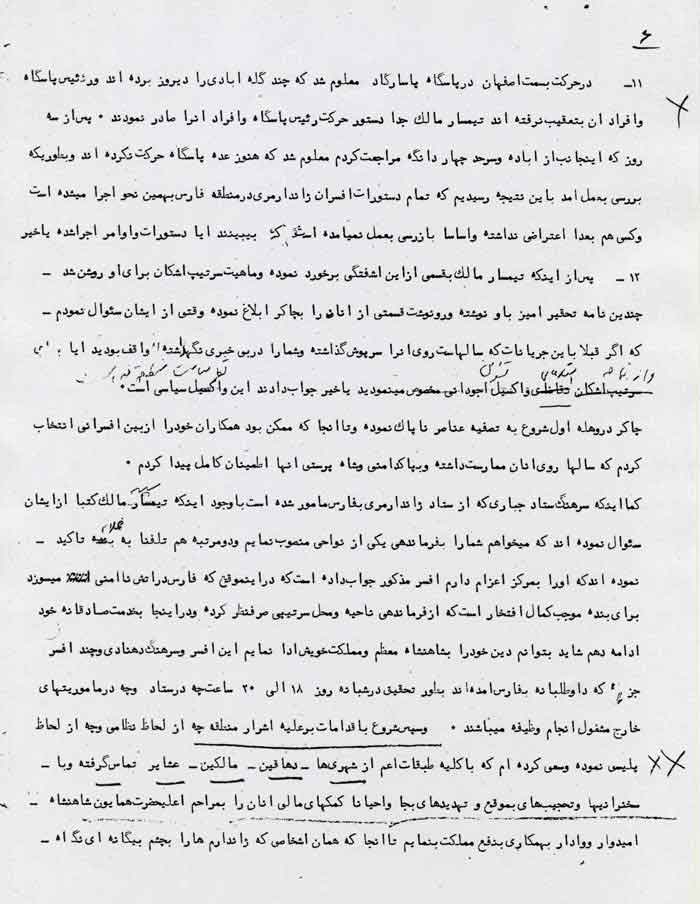 ۶
۱۱ـ در حرکت بسمت اصفهان در پاسگاه پاسارگاد معلوم شد که چند گله ابادی را دیروز برده اند و رئیس پاسگاه
و افراد ان بتعقیب نرفته اند تیمسار مالک جدا دستور حرکت رئیس پاسگاه و افراد انرا صادر نمودند ۰ پس از سه
روز که اینجانب از اباده و سرحد چهار دانگه مراجعت کردم معلوم شد که هنوز عده پاسگاه حرکت نکرده اند و بطوریکه
بررسی بعمل امد باین نتیجه رسیدیم که تمام دستورات افسران ژاندارمری در منطقه فارس بهمین نحو اجرا میشده است
و کسی هم بعدا اعتراضی نداشته و اساسا بازرسی بعمل نمیامده است که ببینند ایا دستورات و اوامر اجرا شده یا خیر
۱۲ ـ پس از اینکه تیمسار مالک بقسمی از این اشفتگی برخورد نموده و ماهیت سرتیپ اشکان برای او روشن شد ـ
چندین نامه تحقیر امیز باو نوشته و رونوشت قسمتی از انان را بچاکر ابلاغ نموده وقتی از ایشان سئوال نمودم ـ
که اگر قبلا باین جریانات که سالهاست روی انرا سرپوش گذاشته و شما را در بی خبری نگهداشته اند واقف بودید ایا
سرتیپ اشکان تقاضای واکسیل اجودانی مخصوص مینمودید یا خیر جواب دادند این واکسیل سیاسی است ۰
چاکر در وهله اول شروع به تصفیه عناصر ناپاک نموده و تا انجا که ممکن بود همکاران خود را از بین افسرانی انتخاب
کردم که سالها روی انان ممارست داشته و بپاکدامنی و شاه پرستی انها اطمینان کامل پیدا کردم ۰
کما اینکه سرهنگ ستاد جباری که از ستاد ژاندارمری بفارس مامور شده است با وجود اینکه تیمسار مالک کتبا از ایشان
سئوال نموده اند که میخواهم شما را بفرماندهی یکی از نواحی منصوب نمایم و دو مرتبه هم تلفنا به تاکید ـ
نموده اند که او را بمرکز اعزام دارم افسر مذکور جواب داده است که در اینموقع که فارس در اتش ناامنی میسوزد
برای بنده موجب کمال افتخار است که از فرماندهی ناحیه و محل سرتیپی صرفنظر کرده و در اینجا بخدمت صادقانه خود
ادامه دهم شاید بتوانم دین خود را بشاهنشاه معظم و مملکت خویش ادا نمایم این افسر و سرهنگ دهنادی و چند افسر
جزء که داوطلبانه بفارس امده اند بطور تحقیق در شبانه روز ۱۸ الی ۲۰ ساعت چه در ستاد و چه در ماموریتهای
خارج مشغول انجام وظیفه میباشند ۰ و سپس شروع باقدامات بر علیه اشرار منطقه چه از لحاظ نظامی و چه از لحاظ
پلیس نموده و سعی کرده ام که با کلیه طبقات اعم از شهری ها ـ دهاقین ـ مالکین ـ عشایر تماس گرفته و با ـ
سخنرانیها و تحبیب های بموقع و تهدیدهای بجا و احیانا کمکهای مالی انان را بمراحم اعلیحضرت همایون شاهنشاه ـ
امیدوار و وادار بهمکاری بنفع مملکت بنمایم تا انجا که همان اشخاصی که ژاندارم ها را بچشم بیگانه ای نگاه ـ